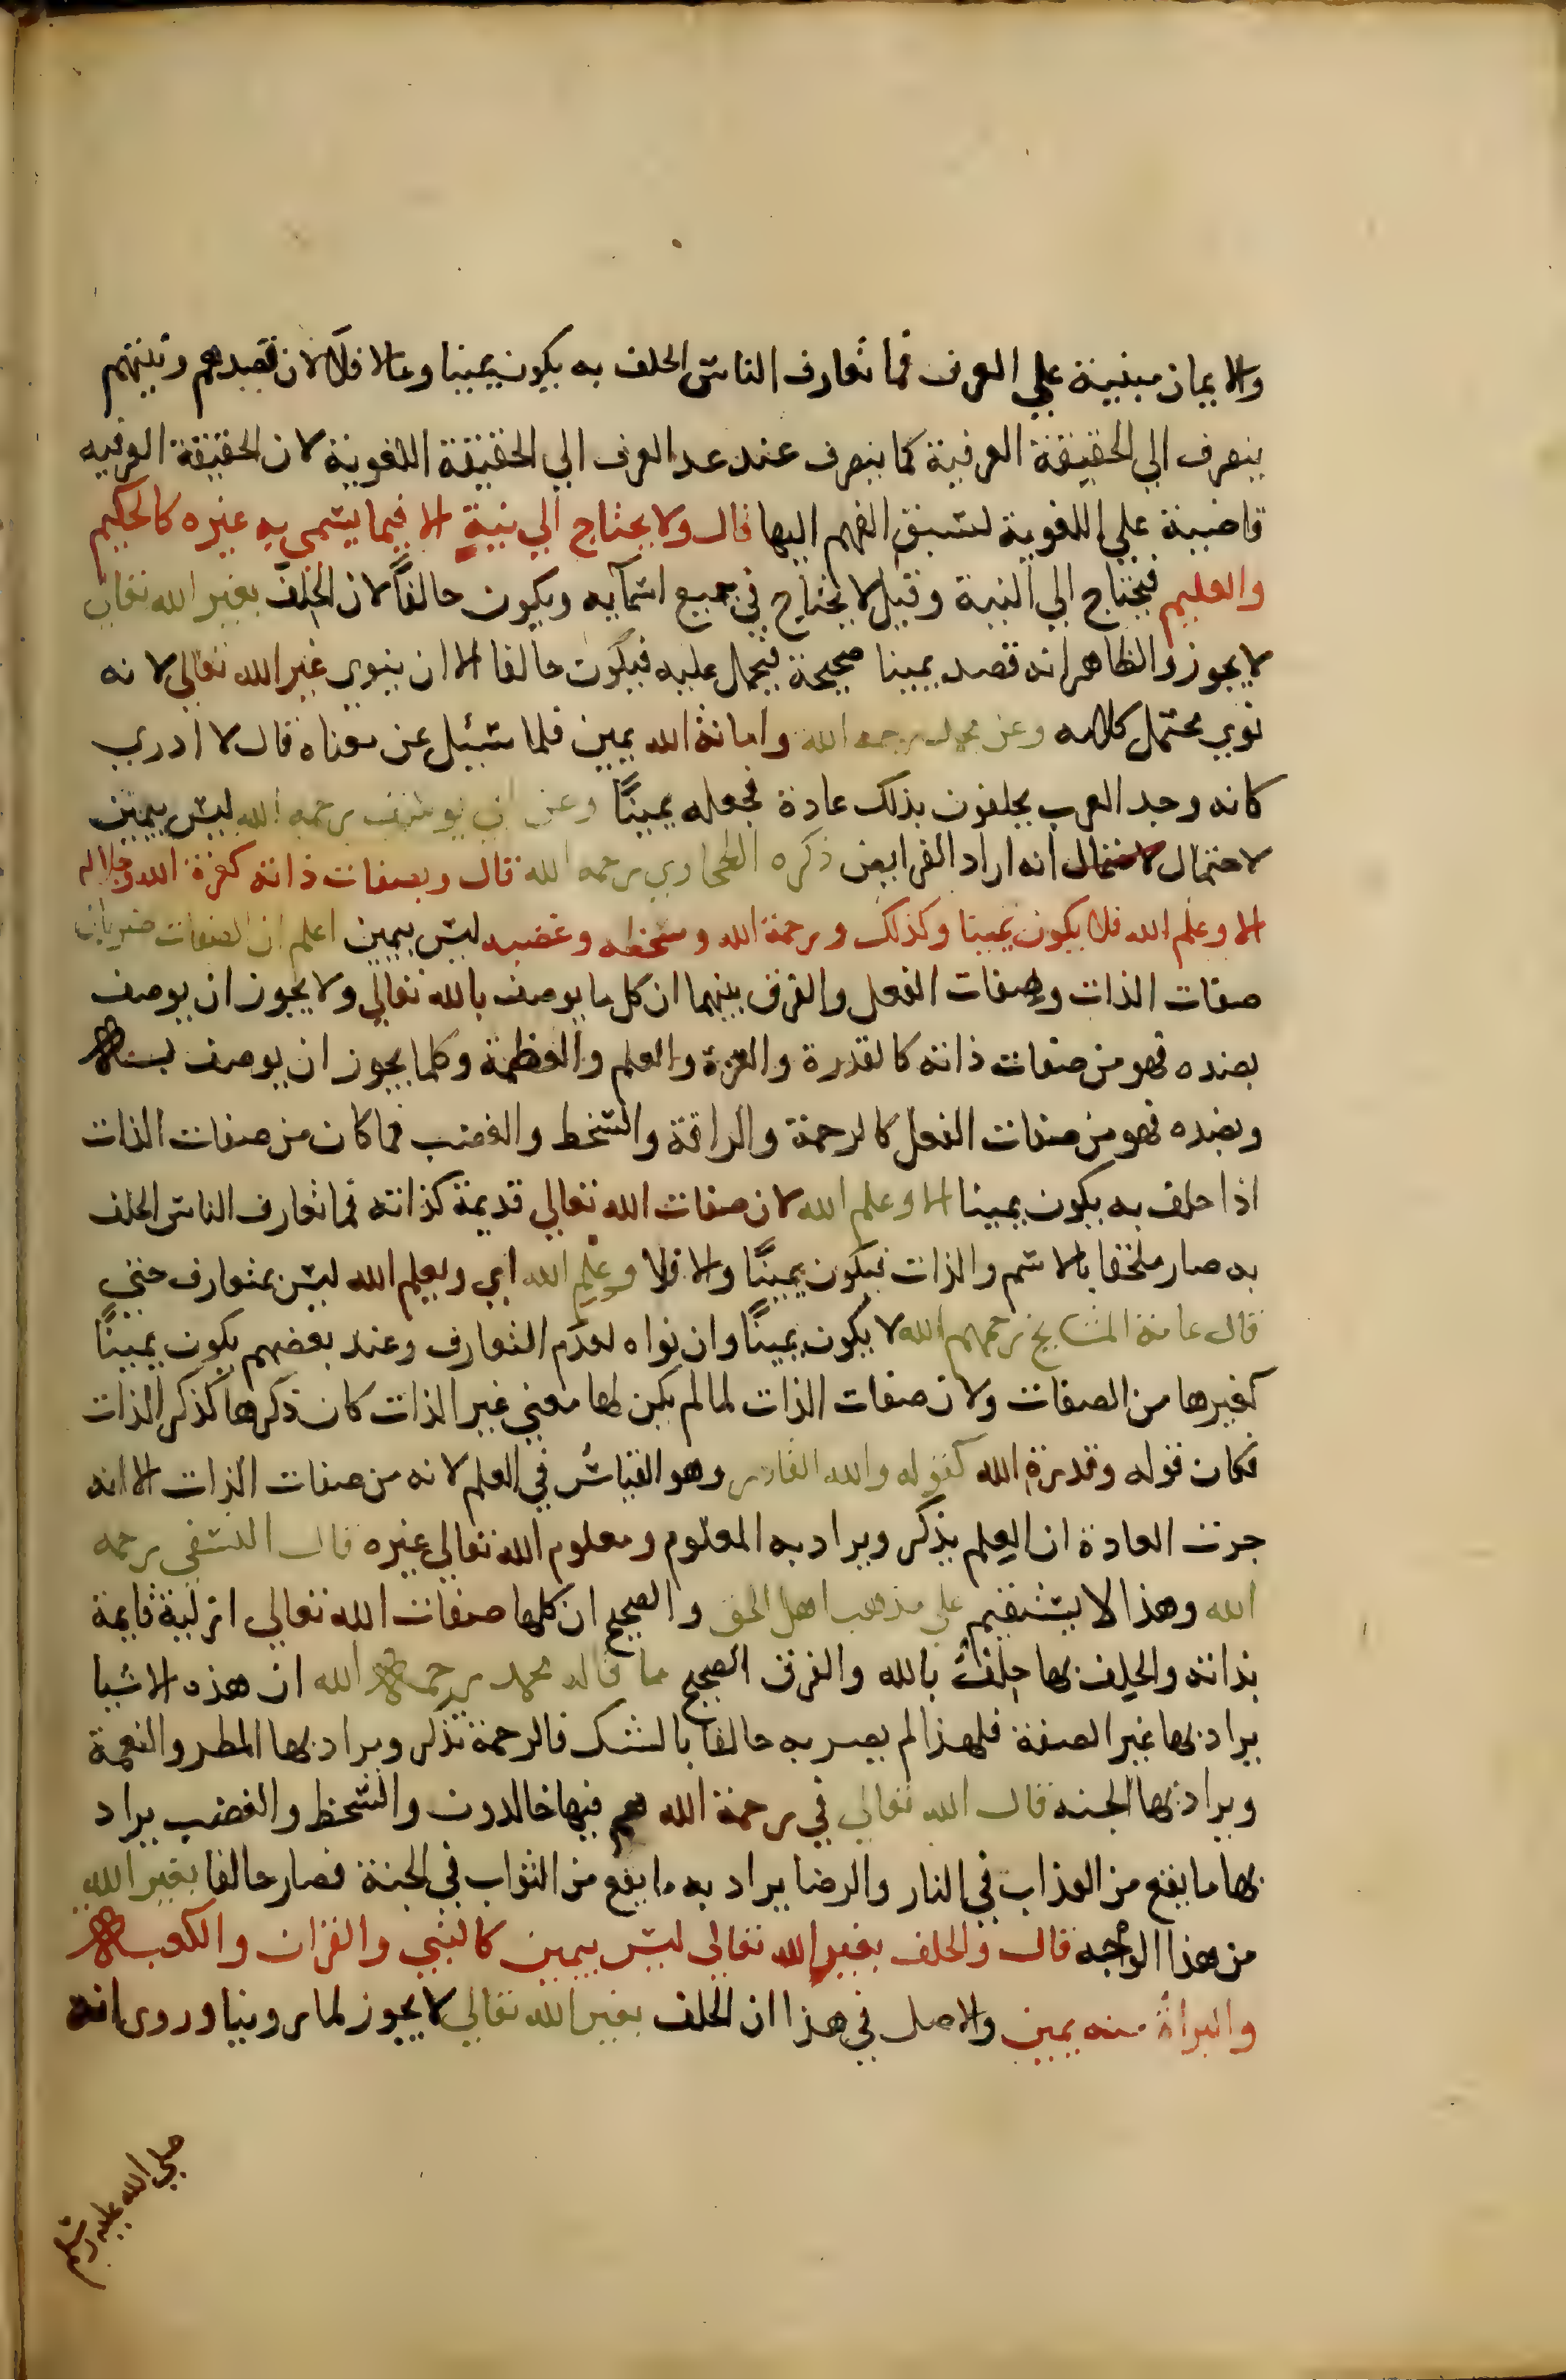 والايمان مبنية علي العرف فما تعارف الناس الحلف به يكون يمينا ومالا فلا لان قصدهم ونيتهم
ينصرف الي الحقيقة العرفية كما ينصرف عند عدم العرف الي الحقيقة اللغوية لان الحقيقة العرفيه
قاضية علي اللغوية لسبق الفهم اليها قال ولا يحتاج الي نية الا فيما يسمي به غيره كالحكيم
والعليم فيحتاج الي النية وقيل لا يحتاج في جميع اسمآيه ويكون حالفاً لان الحلف بغير الله تعالي
لا يجوز والظاهر انه قصد يمينا صحيحة فيحمل عليه فيكون حالفا الا ان ينوي غير الله تعالي لانه
نوي محتمل كلامه وعن محمد رحمه الله وامانة الله يمين فلما سُئِل عن معناه قال لا ادري
كانه وجد العرب يحلفون بذلك عادة فجعله يميناً وعن ابي يوسف رحمه الله ليس بيمين
لاحتمال انه اراد الفرايض ذكره الطحاوي رحمه الله قال وبصفات ذاته كعزة الله وجلاله
الا وعلم الله فلا يكون يمينا وكذلك ورحمة الله وسخطه وغضبه ليس بيمين اعلم ان الصفات ضربان
صفات الذات وصفات الفعل والفرق بينهما ان كل ما يوصف بالله تعالي ولا يجوز ان يوصف
بضده فهو من صفات ذاته كالقدرة والعزة والعلم والعظمة وكلما يجوز ان يوصف به
وبضده فهو من صفات الفعل كالرحمة والرافة والسخط والغضب فما كان من صفات الذات
اذا حلف به يكون يمينا الا وعلم الله لان صفات الله تعالي قديمة كذاته فما تعارف الناس الحلف
به صار ملحقا بالاسم والذات فيكون يميناً والا فلا وعلم الله اي وبعلم الله ليس بمتعارف حتي
قال عامة المشايخ رحمهم الله لا يكون يميناً وان نواه لعدم التعارف وعند بعضهم يكون يميناً
كغيرها من الصفات ولان صفات الذات لما لم يكن لها معني غير الذات كان ذكرها كذكر الذات
فكان قوله وقدرة الله كقوله والله القادر وهو القياسُ في العلم لانه من صفات الذات الا انه
جرت العادة ان العلم يذكر ويراد به المعلوم ومعلوم الله تعالي غيره قال النسفي رحمه
الله وهذا لا يستقيم علي مذهب اهل الحق والصحيح ان كلها صفات الله تعالي ازلية قايمة
بذاته والحلف بها حلفٌ بالله والفرق الصحيح ما قاله محمد رحمه الله ان هذه الاشيا
يراد بها غير الصفة فلهذا لم يصر به حالفا بالشك فالرحمة تذكر ويراد بها المطر والنعمة
ويراد بها الجنه قال الله تعالي في رحمة الله هم فيها خالدون والسخط والغضب يراد
بها ما يقع من العذاب في النار والرضا يراد به ما يقع من الثواب في الجنة فصار حالفا بغير الله
من هذا الوجه قال والحلف بغير الله تعالي ليس بيمين كالنبي والقران والكعبه
والبراة منه يمين والاصل في هذا ان الحلف بغير الله تعالي لا يجوز لما روينا وروي انه
صلي الله عليه وسلم